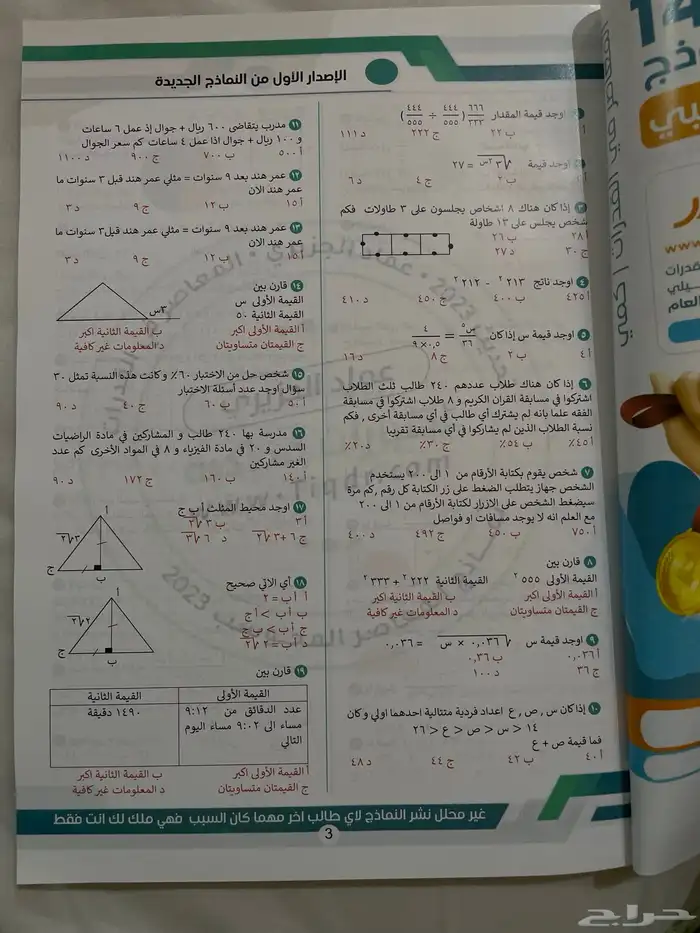 الإصدار الأول من النماذج الجديدة
اوجد قيمة المقدار ٦٦٦/٣٣٣ (٤٤٤/٥٥٥ ÷ ٤٤٤/٥٥٥)
ب ٢٢ ج ٢٢٢ د ١١١
اوجد قيمة √٣ ٢س = ٢٧
ب ٢ ج ٤ د ٦
٣ إذا كان هناك ٨ اشخاص يجلسون على ٣ طاولات فكم
شخص يجلس على ١٣ طاولة
أ ٢٨ ب ٢٦
ج ٣٠ د ٢٧
٤ اوجد ناتج ٢١٣ ٢ - ٢١٢ ٢
أ ٤٢٥ ب ٤٠٠ ج ٤٥٠ د ٤١٠
٥ اوجد قيمة س إذا كان س٥/٣٦ = ٤/٩×٠,٥
أ ٤ ب ٢ ج ٨ د ١٦
٦ إذا كان هناك طلاب عددهم ٢٤٠ طالب ثلث الطلاب
اشتركوا في مسابقة القران الكريم و ٨ طلاب اشتركوا في مسابقة
الفقه علما بانه لم يشترك أي طالب في أي مسابقة أخرى , فكم
نسبة الطلاب الذين لم يشاركوا في أي مسابقة تقريبا
أ ٤٥٪ ب ٥٤٪ ج ٣٠٪ د ٢٠٪
٧ شخص يقوم بكتابة الأرقام من ١ الى ٢٠٠ يستخدم
الشخص جهاز يتطلب الضغط على زر الكتابة كل رقم , كم مرة
سيضغط الشخص على الازرار لكتابة الأرقام من ١ الى ٢٠٠
مع العلم انه لا يوجد مسافات او فواصل
أ ٧٥٠ ب ٤٥٠ ج ٤٩٢ د ٤٠٠
٨ قارن بين
القيمة الأولى ٥٥٥ ٢ القيمة الثانية ٢٢٢ ٢ + ٣٣٣ ٢
أ القيمة الأولى اكبر ب القيمة الثانية اكبر
ج القيمتان متساويتان د المعلومات غير كافية
٩ اوجد قيمة س √٠,٠٣٦ × س = ٠,٠٣٦
أ ٠,٠٣٦ ب ٠,٣٦
ج ٣٦ د ١٠٠
١٠ إذا كان س , ص , ع اعداد فردية متتالية احدهما اولي و كان
١٤ < س < ص < ع < ٢٦
فما قيمة ص + ع
أ ٤٠ ب ٤٢ ج ٤٤ د ٤٨
١١ مدرب يتقاضى ٦٠٠ ريال + جوال إذ عمل ٦ ساعات
و ١٠٠ ريال + جوال اذا عمل ٤ ساعات كم سعر الجوال
أ ٥٠٠ ب ٧٠٠ ج ٩٠٠ د ١١٠٠
١٢ عمر هند بعد ٩ سنوات = مثلي عمر هند قبل ٣ سنوات ما
عمر هند الان
أ ١٥ ب ١٢ ج ٩ د ٣
١٣ عمر هند بعد ٩ سنوات = مثلي عمر هند قبل ٣ سنوات ما
عمر هند الان
أ ١٥ ب ١٢ ج ٩ د ٣
١٤ قارن بين
القيمة الأولى س
القيمة الثانية ٥٠
٣س
أ القيمة الأولى اكبر ب القيمة الثانية اكبر
ج القيمتان متساويتان د المعلومات غير كافية
١٥ شخص حل من الاختبار ٦٠٪ و كانت هذه النسبة تمثل ٣٠
سؤال اوجد عدد أسئلة الاختبار
أ ٥٠ ب ٦٠ ج ٤٠ د ٩٠
١٦ مدرسة بها ٢٤٠ طالب و المشاركين في مادة الراضيات
السدس و ٢٠ في مادة الفيزياء و ٨ في المواد الأخرى كم عدد
الغير مشاركين
أ ١٤٠ ب ١٦٠ ج ١٧٢ د ٩٠
١٧ اوجد محيط المثلث أ ب ج
أ ٣ ب ٣√٢
ج ٦ + ٣√٢ د ٦√٣
أ
٣√٢
ج
ب
١٨ أي الاتي صحيح
أ أب = ٢
ب أب > أج
ج أب > ب ج
د أب = ٢√٢
أ
٢√٢
ج
ب
١٩ قارن بين
القيمة الأولى القيمة الثانية
عدد الدقائق من ٩:١٢ ١٤٩٠ دقيقة
مساء الى ٩:٠٢ مساء اليوم
التالي
أ القيمة الأولى اكبر ب القيمة الثانية اكبر
ج القيمتان متساويتان د المعلومات غير كافية
غير محلل نشر النماذج لاي طالب اخر مهما كان السبب فهي ملك لك انت فقط
3
عماد الجزيري
2023
14
المعاصر في القدرات | كمي
www
حراج